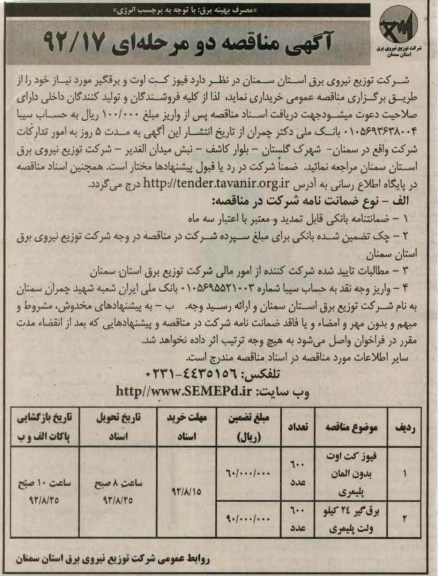 «مصرف بهینه برق: با توجه به برچسب انرژی»
شرکت توزیع نیروی برق
استان سمنان
آگهی مناقصه دو مرحله‌ای ۹۲/۱۷
شرکت توزیع نیروی برق استان سمنان در نظر دارد فیوز کت اوت و برقگیر مورد نیاز خود را از
طریق برگزاری مناقصه عمومی خریداری نماید، لذا از کلیه فروشندگان و تولید کنندگان داخلی دارای
صلاحیت دعوت میشودجهت دریافت اسناد مناقصه پس از واریز مبلغ ۱۰۰/۰۰۰ ریال به حساب سیبا
۰۱۰۵۶۹۳۶۳۸۰۰۴ بانک ملی دکتر چمران از تاریخ انتشار این آگهی به مدت ۵ روز به امور تدارکات
شرکت واقع در سمنان- شهرک گلستان - بلوار کاشف - نبش میدان الغدیر - شرکت توزیع نیروی برق
استان سمنان مراجعه نمائید. ضمناً شرکت در رد یا قبول پیشنهادها مختار است. همچنین اسناد مناقصه
در پایگاه اطلاع رسانی به آدرس http://tender.tavanir.org.ir درج می‌گردد.
الف - نوع ضمانت نامه شرکت در مناقصه:
۱ - ضمانتنامه بانکی قابل تمدید و معتبر با اعتبار سه ماه
۲ - چک تضمین شده بانکی برای مبلغ سپرده شرکت در مناقصه در وجه شرکت توزیع نیروی برق
استان سمنان
۳ - مطالبات تایید شده شرکت کننده از امور مالی شرکت توزیع برق استان سمنان
۴ - واریز وجه نقد به حساب سیبا شماره ۰۱۰۵۶۹۵۵۲۱۰۰۳ بانک ملی ایران شعبه شهید چمران سمنان
به نام شرکت توزیع برق استان سمنان و ارائه رسید وجه. ب - به پیشنهادهای مخدوش، مشروط و
مبهم و بدون مهر و امضاء و یا فاقد ضمانت نامه شرکت در مناقصه و پیشنهادهایی که بعد از انقضاء مدت
مقرر در فراخوان واصل می‌شود به هیچ وجه ترتیب اثر داده نخواهد شد.
سایر اطلاعات مورد مناقصه در اسناد مناقصه مندرج است.
تلفکس: ۴۴۳۵۱۵۶-۰۲۳۱
وب سایت: http//www.SEMEPd.ir
ردیف موضوع مناقصه تعداد مبلغ تضمین (ریال) مهلت خرید اسناد تاریخ تحویل اسناد تاریخ بازگشایی پاکات الف و ب
۱ فیوز کت اوت بدون المان پلیمری ۶۰۰ عدد ۶۰/۰۰۰/۰۰۰ ۹۲/۸/۱۵ ساعت ۸ صبح ۹۲/۸/۲۵ ساعت ۱۰ صبح ۹۲/۸/۲۵
۲ برق‌گیر ۲۴ کیلو ولت پلیمری ۶۰۰ عدد ۹۰/۰۰۰/۰۰۰
روابط عمومی شرکت توزیع نیروی برق استان سمنان